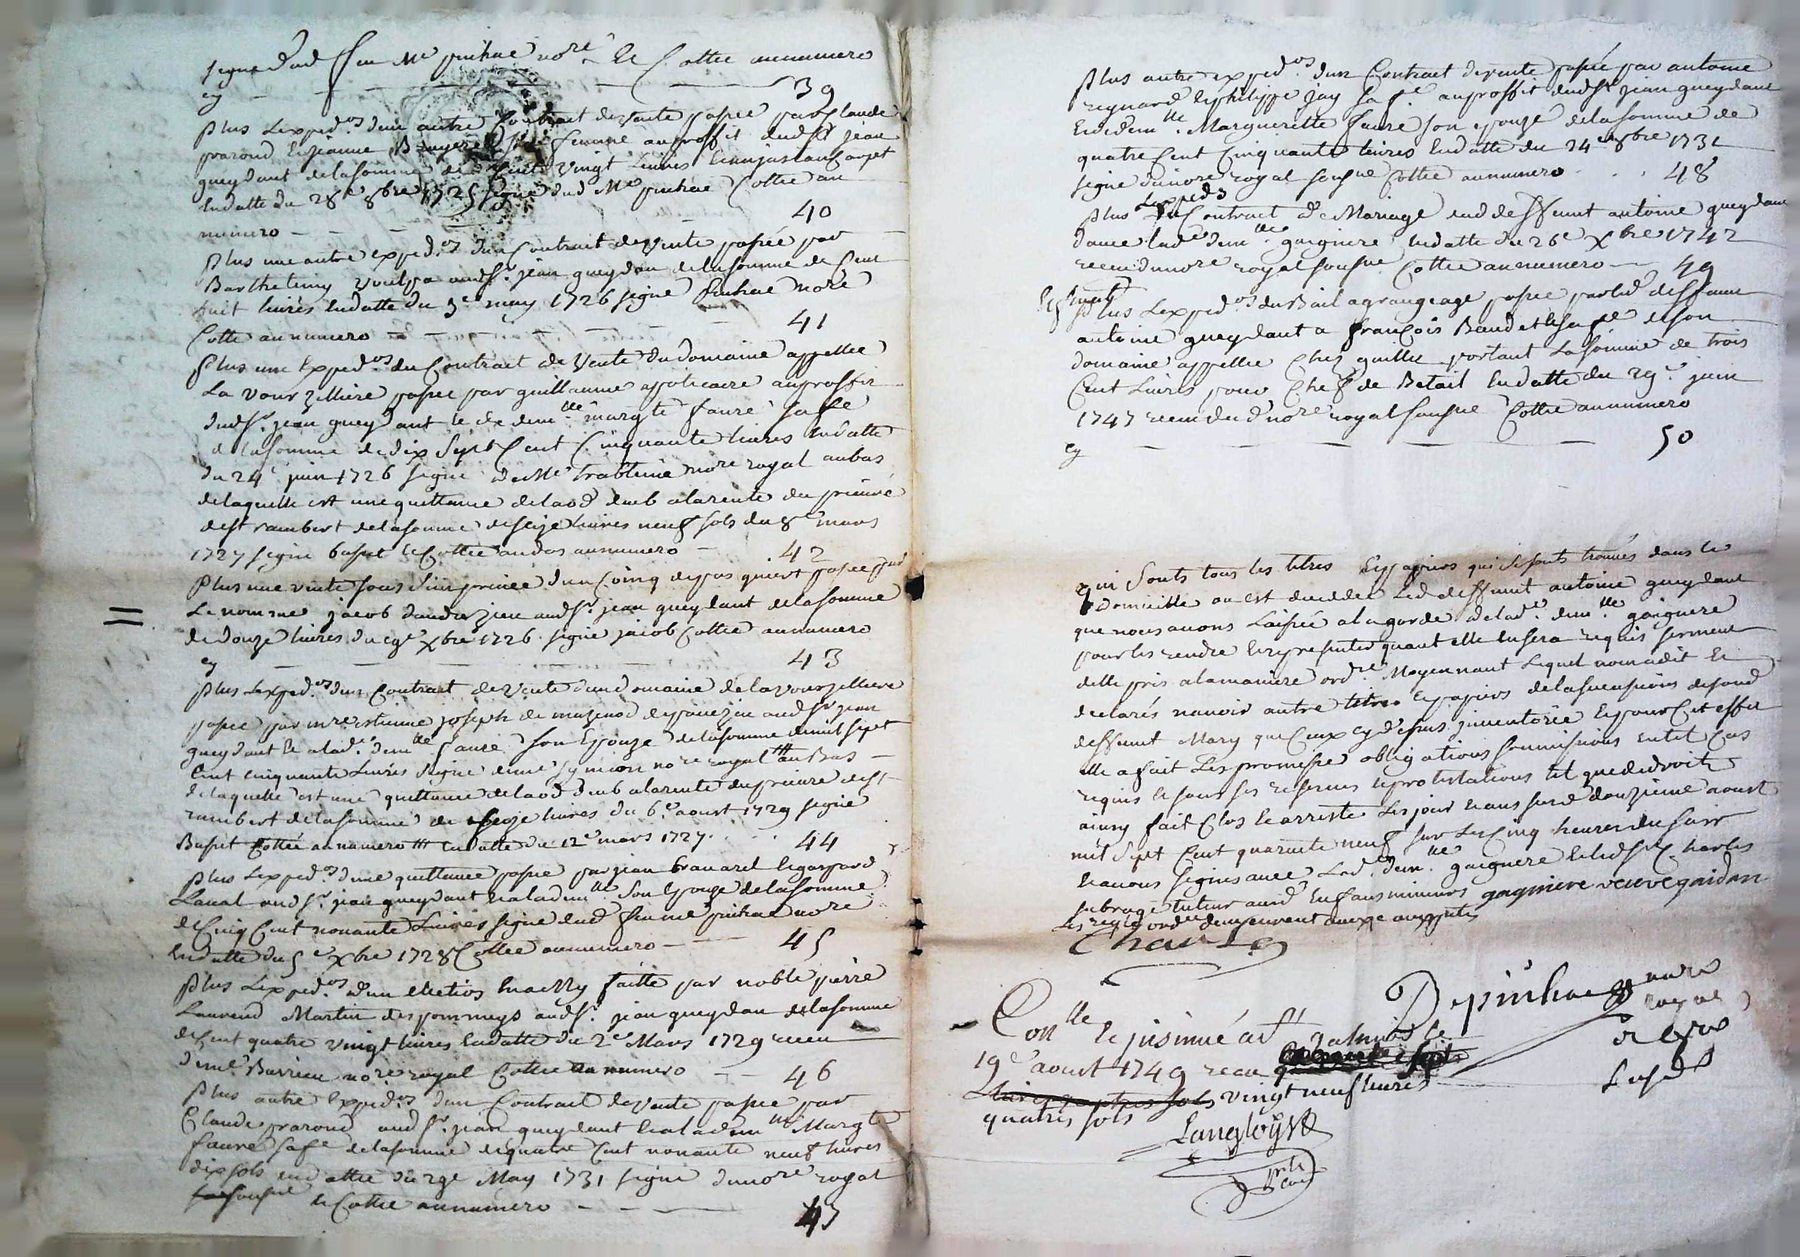 signe dud feu Me pinhac nore & Cottee aunumero
cy 39
plus Lexped.on dune autre Contract de vente passee par Claude
prarond & jeanne Bruyere sa femme auproffit dudSr jean
gueydant delasomme de Cent vingt livres
Endatte du 28e 8bre 1725 signe dud Me pinhac Cottee au
numero 40
plus une autre expedon dun Contract de vente passée par
Barthelemy audSr jean gueydan delasomme de Cent
huit livres Endatte du 3e may 1726 signé pinhac nore
Cotte aunumero 41
plus une Expedon du Contract de Vente du domaine appellee
La vourzelliere passee par guillaume apoticaire auproffit
dudSr jean gueydant & de demlle margte faure saffe
delasomme de dix Sept Cent Cinquante livres Endatte
du 24e juin 1726 signé de Me trablaine nore royal aubas
delaquelle est une quittance delaod deub alarente du prieuré
de st rambert delasomme de seize livres neuf sols du 8e mars
1727 signe busset & Cottee audos aunumero 42
plus une vente sous seing privée dun Coing de pas quiert passee par
Le nommé jacob dandrezieu audSr jean gueydant delasomme
de douze livres du 19e xbre 1726 signé jacob Cottee aunumero
cy 43
plus Lexpedon dun Contract de Vente dun domaine de la vourzelliere
passee par mre estienne joseph de mazenod de pavezin audSr jean
gueydant & aladte demlle faure son Epouze delasomme demil sept
Cent cinquante Livres signé deme symeon nore royal ttt aubas
delaquelle est une quittance delaod deub alarente duprieuré dest
rambert delasomme de seize livres du 6e aoust 1729 signé
Busset Cottée aunumero ttt endatte du 12e mars 1727. 44
plus Lexpedon dune quittance passee par jean bravard & gaspard
Lanal audSr jean gueydant & aladem lle son Epouze delasomme
de Cinq Cent nonante Livres signé dud feu me pinhac nore
Endatte du 5e xbre 1728 Cottee aunumero 45
plus Lexpedon dun Election faitte par noble pierre
Laurend Martin des pommeys audSr jean gueydan delasomme
deCent quatre vingt livres Endatte du 2e Mars 1729 receu
deme Barrieu nore royal Cottee au numero 46
plus autre Expedon dun Contract de vente passee par
Claude prarond audSr jean gueydant & alademlle Margte
faure safe delasomme dequatre Cent nonante neuf livres
dix sols endatte du 29e May 1731 signé dunore royal
sousné & Cottee aunumero 47
plus autre expedon dun Contract de vente passée par antoine
reynard & philippe jay sa fe auproffit dudSr jean gueydant
Et de demlle Margueritte faure son epouze delasomme de
quatre Cent Cinquante livres Endatte du 24e 8bre 1731
signe dunore royal sousné Cottee aunumero 48
plus Lexpedon du Contract de Mariage dud deffunt antoine gueydant
& avec lade demlle gagniere Endatte du 26e xbre 1742
receu dunore royal sousné Cottee aunumero 49
plus Lexpedon du Bail agrangeage passée par led deffunt
antoine gueydant a françois Baudet & safe de son
domaine appellee Chez quillet portant Lasomme de trois
Cent Livres pour Chef de Betail Endatte du 29e juin
1747 receu dud nore royal sousné Cottee aunumero
cy 50
qui Sonts tous les titres Et papiers qui se sonts trouvés dans le
Domicille ou est decedé Led deffunt antoine gueydant
que nous avons Laissée a la garde delade demlle gagniere
pour les rendre & representer quant elle ensera requis serment
delle pris alamanière ordre Moyennant Lequel nomadit &
declarés navoir autre titres Et papiers delasucession defond
deffunt Mary que Ceux cydessus inventorié Et pour Cet effet
elle a fait Les promesse obligations soumissions entel Cas
requis & sous les reserves & protestations tel quededroits
ainsy fait Clos & arresté Les jour & ans susd douzieme aoust
mil sept Cent quarante neuf sur Les Cinq heures du soir
& avons signés avec Lad. demlle gagniere & ledSr Charles
subrogé tuteur aux Enfans mineurs gagniere veuve gaidan
Charles
Depinhac nore royal
Conlle & insinué a st galmier le
19e aoust 1749 receu
vingt neuf livres
quatre sols
Langloÿs